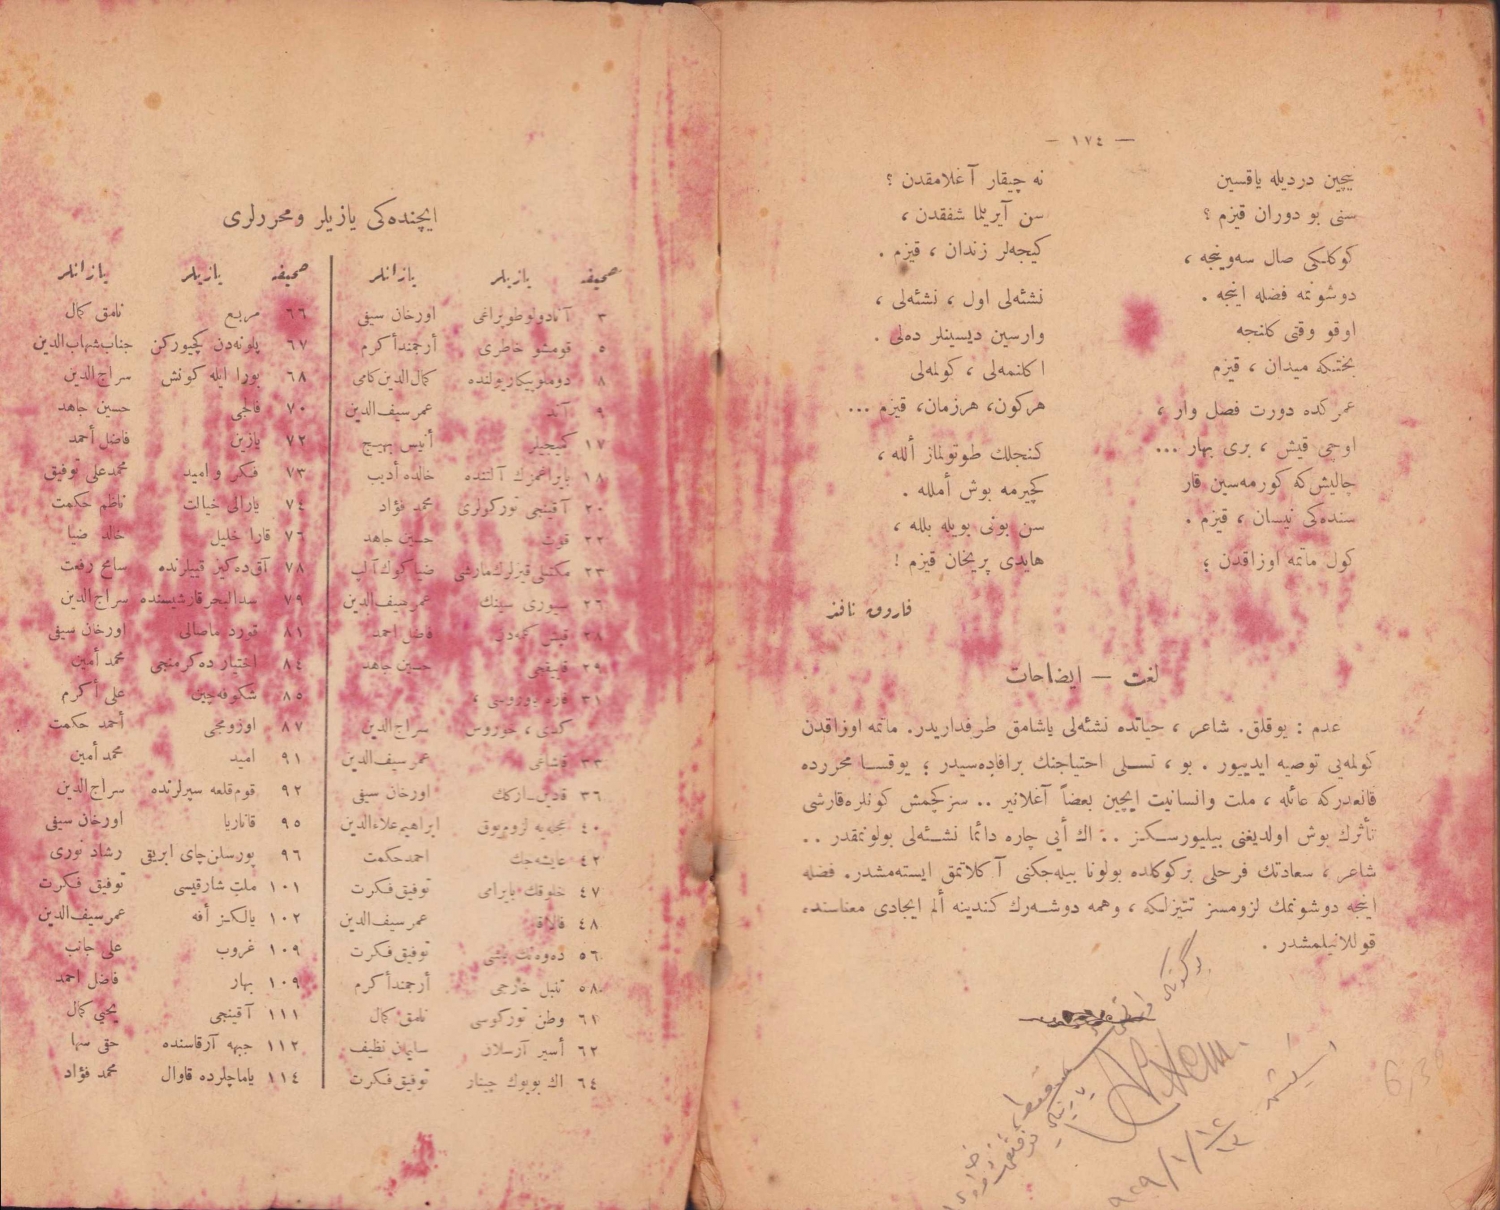 — ١٧٤ —
نیچین دردیله یاقسین
سنی بو دوران قیزم ؟
کوکلکی صال سه‌وینجه ،
دوشونمه فضله اینجه .
اوقو وقتی کلنجه
بختکه میدان ، قیزم
عمرکده دورت فصل وار ،
اوجی قیش ، بری بهار ...
چالیش‌که کورمه‌سین قار
سنده‌کی نیسان ، قیزم .
کول ماتمه اوزاقدن ؛
نه چیقار آغلامقدن ؟
سن آیریلما شفقدن ،
کیجه‌لر زندان ، قیزم .
نشئه‌لی اول ، نشئه‌لی ،
وارسین دیسینلر ده‌لی .
اکلنمه‌لی ، کولمه‌لی
هرکون، هرزمان، قیزم ...
کنجلك طوتولماز أللە ،
کچیرمه بوش أمللە .
سن بونی بویله بللە ،
هایدی پریخان قیزم !
فاروق نافذ
لغت — ایضاحات
عدم : یوقلق. شاعر ، حیاتده نشئه‌لی یاشامق طرفداریدر. ماتمه اوزاقدن
کولمه‌یی توصیه ایدییور . بو ، تسلی احتیاجنك برافاده‌سیدر ؛ یوقسا محررده
قانعدرکه عائله ، ملت وانسانیت ایچین بعضاً آغلانیر .. سزکچمش کونلره‌قارشی
تأثرك بوش اولدیغنی بیلیورسکز .. اك أیی چاره دائما نشئه‌لی بولونمقدر ..
شاعر ، سعادتك فرحلی برکوکلده بولونا بیله‌جکنی آکلاتمق ایسته‌مشدر. فضله
اینجه دوشونمك لزومسز تتیزلکه ، وهمه دوشه‌رك کندینه ألم ایجادی معناسنده
قوللانیلمشدر .
ایچنده‌کی یازیلر ومحررلری
صحیفه یازیلر یازانلر
٣ آنادولوطوپراغی اورخان سیفی
٥ قومشو خاطری أرجمندأکرم
٨ کمال‌الدین‌کامی
٩ آند عمرسیف‌الدین
١٧ کمیجیلر أنیس بهیج
١٨ بایراغمزك آلتنده خالده‌أدیب
٢٠ آقینجی تورکولری محمد فؤاد
٢٢ قوت حسین جاهد
٢٣ مکتبلی‌قیزلرك‌مارشی ضیاکوك‌آلپ
٢٦ سیوری سینك عمرسیف‌الدین
٢٨ فاضل احمد
٢٩ قاییقجی حسین جاهد
٣١
کدی ، خوروس سراج‌الدین
٣٣ قاشاغی عمرسیف‌الدین
٣٦ قادین‌ـارکك اورخان سیفی
٤٠ ابراهیم‌علاءالدین
٤٢ عایشه‌جك احمدحکمت
٤٧ خلوقك بایرامی توفیق‌فکرت
٤٨ عمرسیف‌الدین
٥٦ توفیق‌فکرت
٥٨ تنبل خارجی أرجمندأکرم
٦١ وطن تورکوسی نامق کمال
٦٢ أسیر آرسلان سلیمان نظیف
٦٤ اك بویوك چینار توفیق‌فکرت
صحیفه یازیلر یازانلر
٦٦ مربع نامق کمال
٦٧ پلونه‌دن کچیورکن جناب‌شهاب‌الدین
٦٨ بورا ایله کونش سراج‌الدین
٧٠ فالجی حسین جاهد
٧٢ یازین فاضل أحمد
٧٣ فکر و امید محمدعلی توفیق
٧٤ یارالی خیالت ناظم حکمت
٧٦ قارا خلیل خالد ضیا
٧٨ آق‌ده‌کیز قییلرنده سامح رفعت
٧٩ سدالبحرقارشیسنده سراج‌الدین
٨١ قورد ماصالی اورخان سیفی
٨٤ اختیار ده‌کرمنجی محمد أمین
٨٥ شکوفه‌چین علی أکرم
٨٧ اوزومجی أحمد حکمت
٩١ امید محمد أمین
٩٢ قوم‌قلعه سپرلرنده سراج‌الدین
٩٥ قاناریا اورخان سیفی
٩٦ پورسلن‌چای ابریقی رشاد نوری
١٠١ ملت شارقیسی توفیق فکرت
١٠٢ یالکز أفه عمرسیف‌الدین
١٠٩ غروب علی جانب
١٠٩ بهار فاضل احمد
١١١ آقینجی یحیی کمال
١١٢ جبهه آرقاسنده حقی سها
١١٤ یاماچلرده قاوال محمد فؤاد